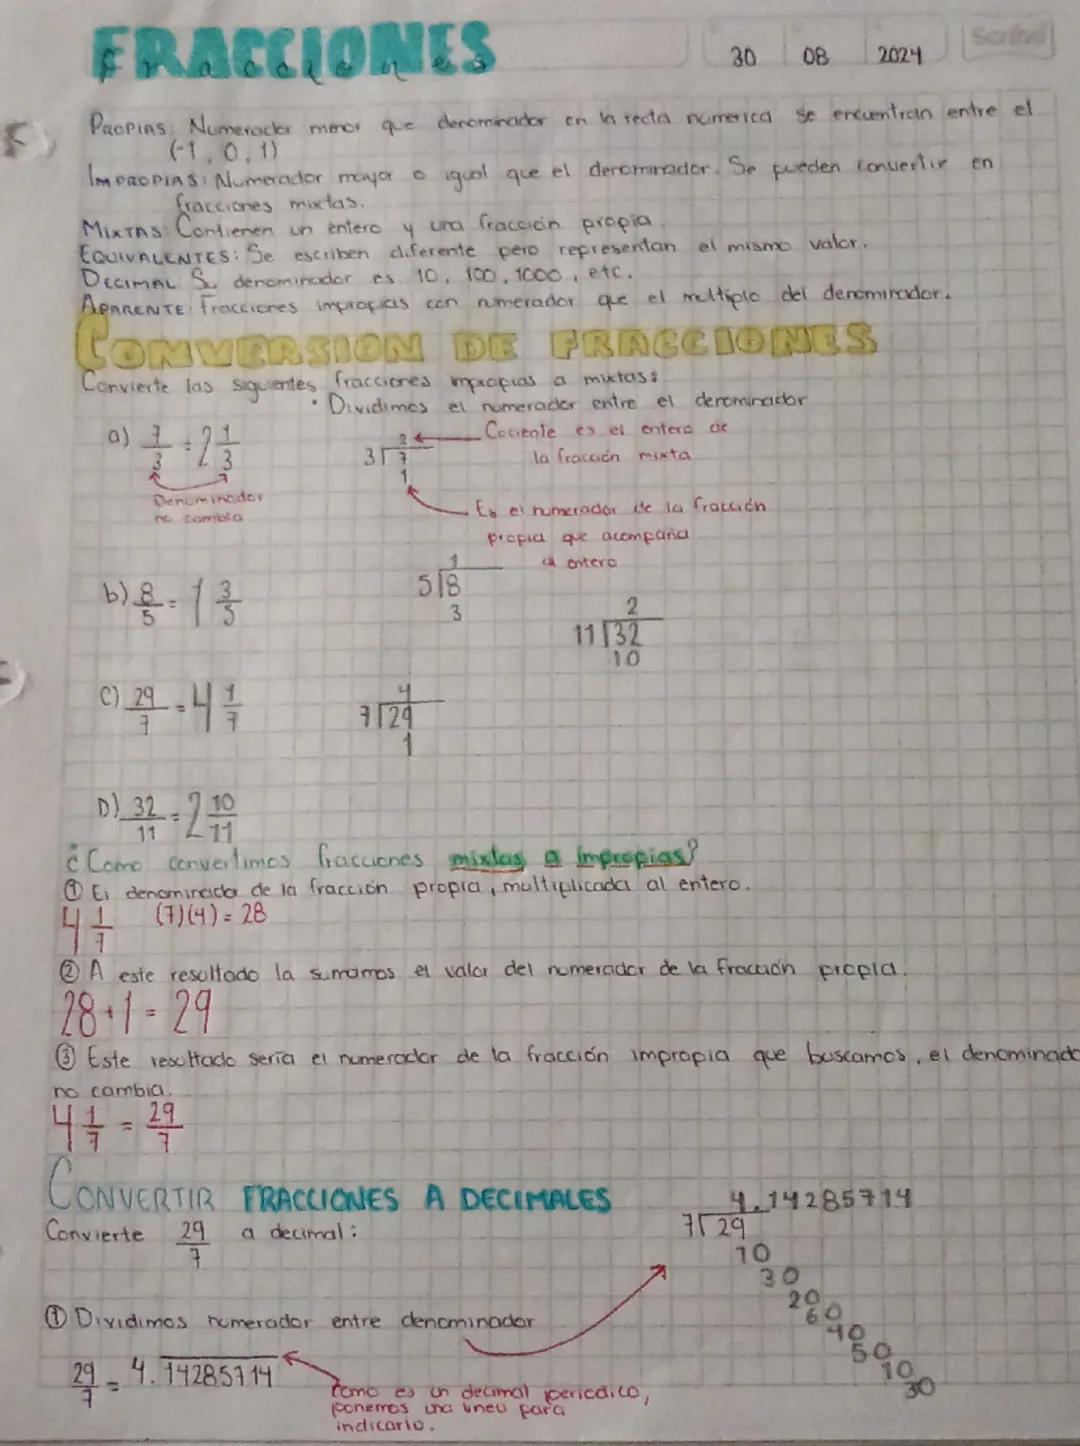 FRACCIONES
Fracciones
30 08 2024
Scribe
PROPIAS: Numerador menor que denominador en la recta numerica se encuentran entre el
(-1, 0, 1)
IMPROPIAS: Numerador mayor o igual que el denominador. Se pueden convertir en
fracciones mixtas.
MIXTAS: Contienen un entero y una fracción propia.
EQUIVALENTES: Se escriben diferente pero representan el mismo valor.
DECIMAL Su denominador es 10, 100, 1000, etc.
APARENTE: Fracciones impropias con numerador que el multiplo del denominador.
CONVERSION DE FRACCIONES
Convierte las siguientes fracciones impropias a mixtas:
• Dividimos el numerador entre el denominador
a) 7/3 = 2 1/3
Denominador
no cambia
2
3 7
1
Cociente es el entero de
la fracción mixta
Es el numerador de la fracción
propia que acompaña
al entero
b) 8/5 = 1 3/5
1
5 8
3
2
11 32
10
C) 29/7 = 4 1/7
4
7 29
1
D) 32/11 = 2 10/11
¿Como convertimos fracciones mixtas a impropias?
① El denominador de la fracción propia, multiplicada al entero.
4 1/7 (7)(4) = 28
② A este resultado la sumamos el valor del numerador de la fracción propia.
28+1 = 29
③ Este resultado sería el numerador de la fracción impropia que buscamos, el denominado
no cambia.
4 1/7 = 29/7
CONVERTIR FRACCIONES A DECIMALES
Convierte 29/7 a decimal:
4.14285714
7 29
10
30
20
60
40
50
10
30
① Dividimos numerador entre denominador
29/7 = 4.14285714
Como es un decimal periodico,
ponemos una linea para
indicarlo.